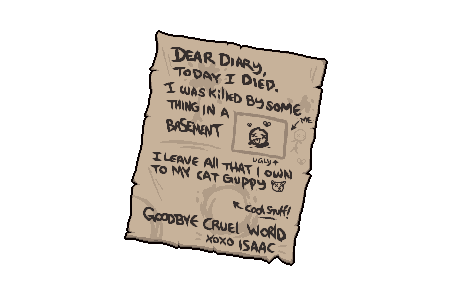 DEAR DIARY,
TODAY I DIED.
I WAS KILLED BY SOME
THING IN A
ME
BASEMENT
UGLY
I LEAVE ALL THAT I OWN
TO MY CAT GUPPY
COOL STUFF!
GOODBYE CRUEL WORLD
XOXO ISAAC